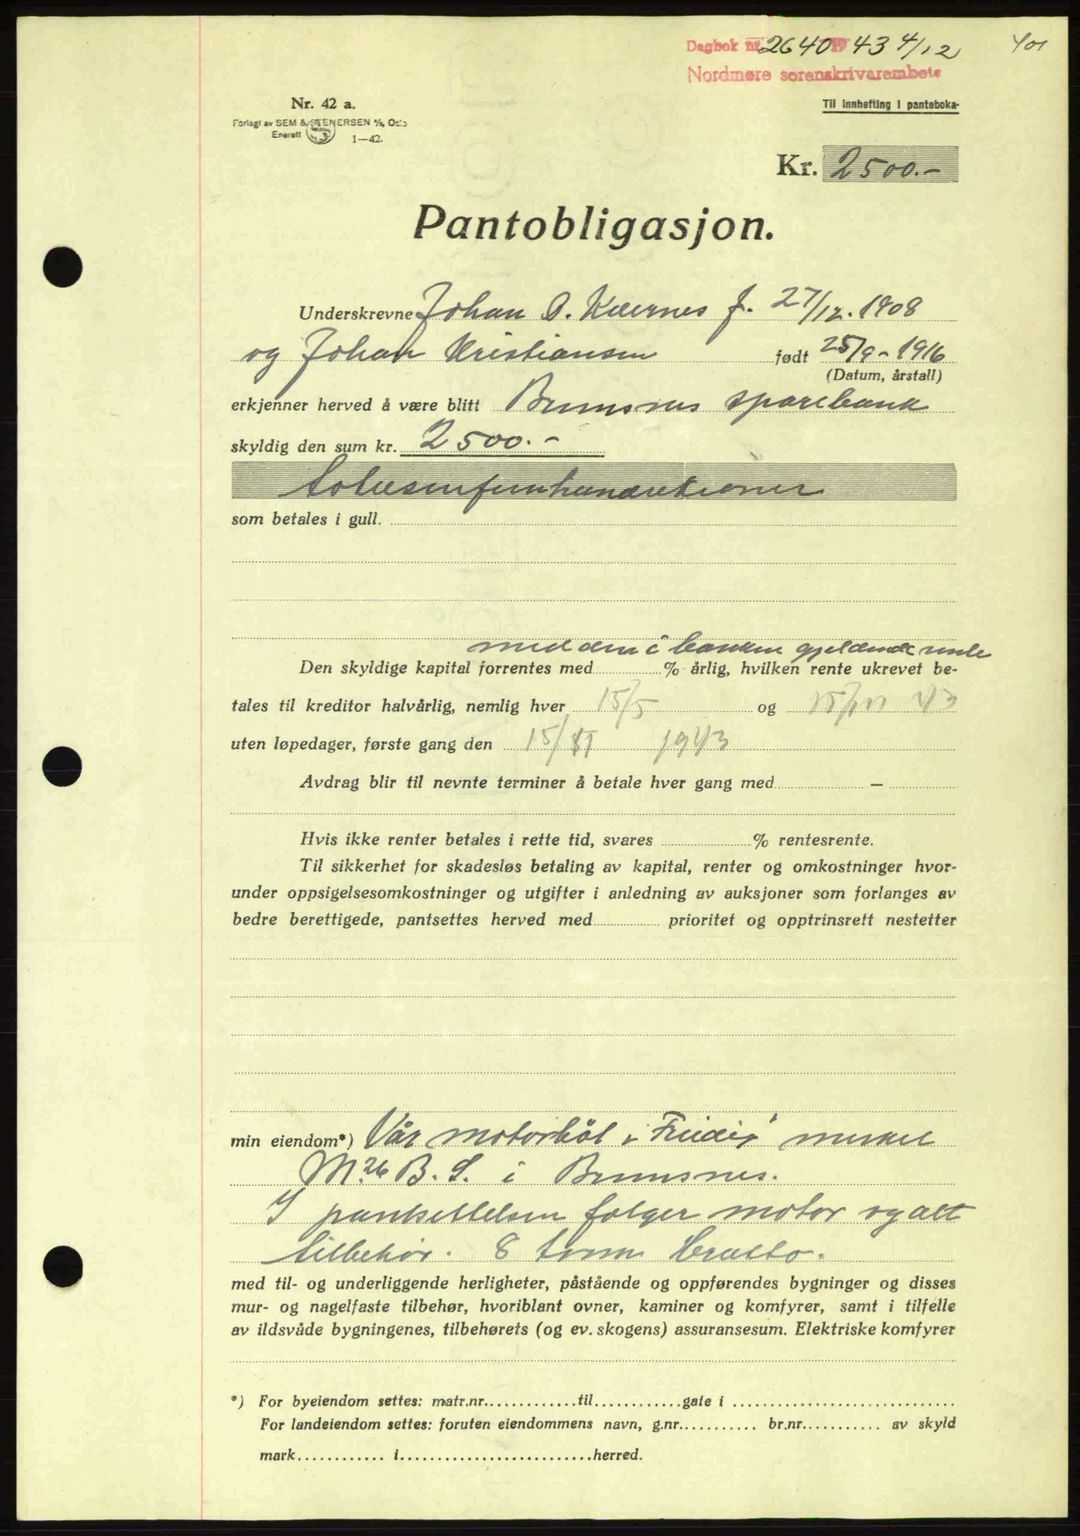 Dagbok nr. 2640 1943 4/12
401
Nordmøre sorenskrivarembete
Nr. 42 a.
Til innhefting i panteboka-
Forlagt av SEM & STENERSEN A/S, Oslo
Enerett
1—42.
Kr. 2500.-
Pantobligasjon.
Underskrevne Johan O. Kvernes f. 27/12. 1908
og Johan Kristiansen født 25/9 - 1916
(Datum, årstall)
erkjenner herved å være blitt Bremsnes sparebank
skyldig den sum kr. 2500.-
totusenfemhundrekroner
som betales i gull.
med den i banken gjeldende rente
Den skyldige kapital forrentes med % årlig, hvilken rente ukrevet be-
tales til kreditor halvårlig, nemlig hver 15/5 og 15/11 43
uten løpedager, første gang den 15/11 1943
Avdrag blir til nevnte terminer å betale hver gang med —
Hvis ikke renter betales i rette tid, svares % rentesrente.
Til sikkerhet for skadesløs betaling av kapital, renter og omkostninger hvor-
under oppsigelsesomkostninger og utgifter i anledning av auksjoner som forlanges av
bedre berettigede, pantsettes herved med prioritet og opptrinsrett nestetter
min eiendom*) Vår motorbåt merket
M. 26 B. S. i Bremsnes.
I pantsettelsen følger motor og alt
tilbehør. 8 tonn brutto.
med til- og underliggende herligheter, påstående og oppførendes bygninger og disses
mur- og nagelfaste tilbehør, hvoriblant ovner, kaminer og komfyrer, samt i tilfelle
av ildsvåde bygningenes, tilbehørets (og ev. skogens) assuransesum. Elektriske komfyrer
*) For byeiendom settes: matr.nr. til gate i
For landeiendom settes: foruten eiendommens navn, g.nr. br.nr. av skyld
mark i herred.